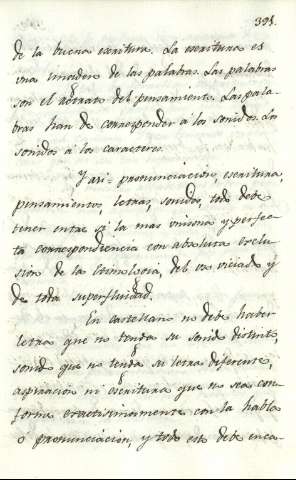 391.
de la buena escritura. La escritura es
una imagen de las palabras. Las palabras
son el retrato del pensamiento. Las pala-
bras han de corresponder á los sonidos. Los
sonidos á los caracteres.
Y asi = pronunciacion, escritura,
pensamientos letras, sonidos, todo debe
tener entre sí la mas unisona y perfec-
ta correspondiencia con absoluta exclu-
sion de la etimologia, del uso viciado y
de toda superfluidad.
En castellano no debe haber
letra que no tenga su sonido distinto,
sonido que no tenga su letra diferente,
aspiracion ni escritura que no sea con-
forme exactisimamente con la habla
o pronunciacion, y todo esto debe enca-